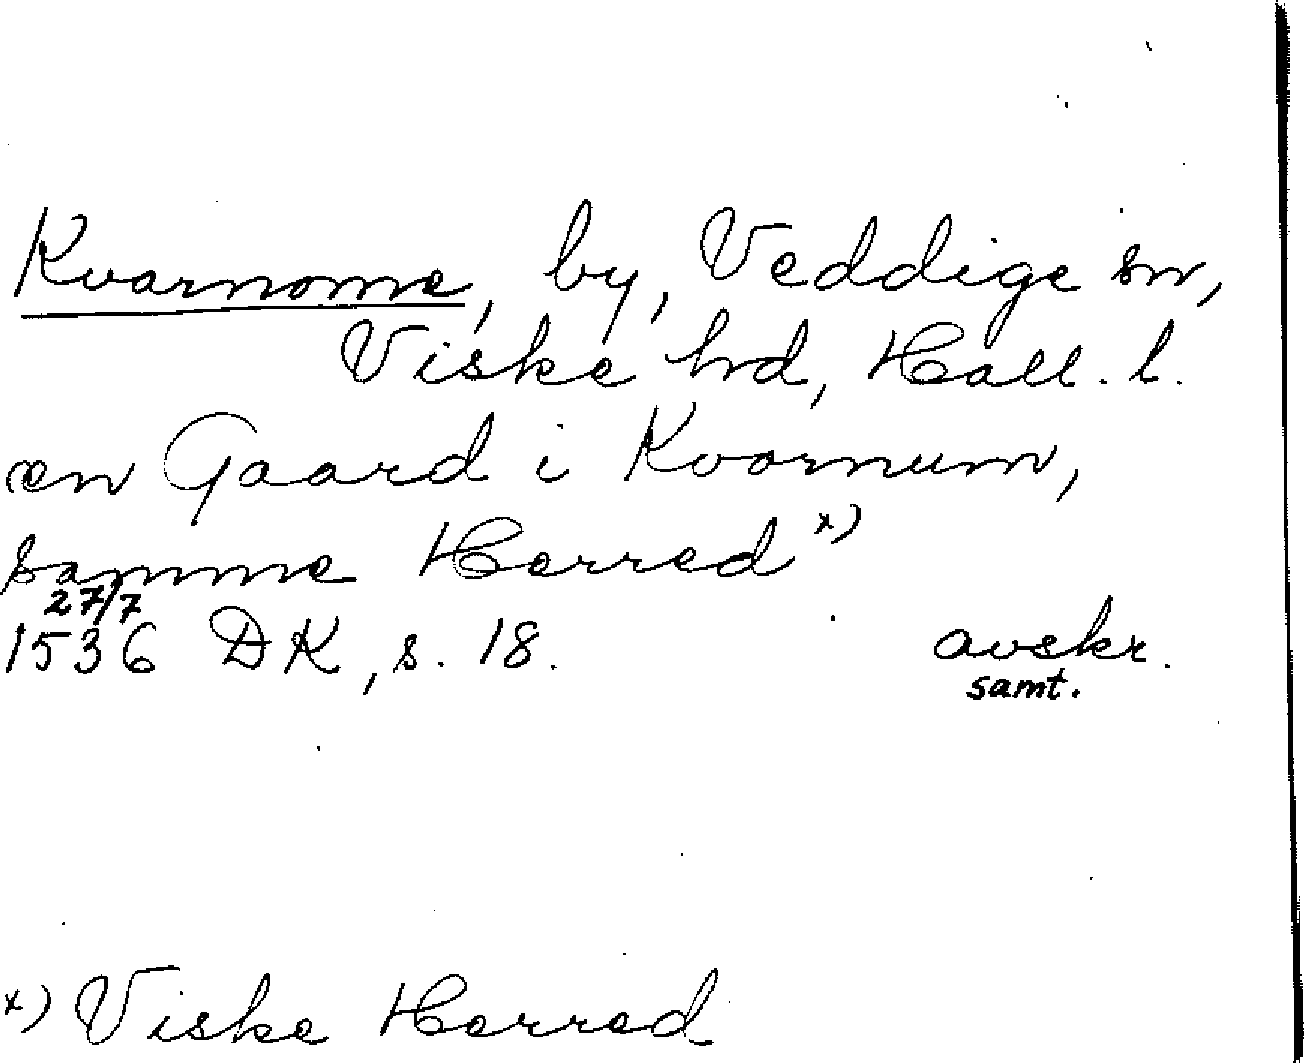 Kvarnome, by, Veddige sn,
Viske hd, Hall. l.
en Gaard i Kvornum,
samme Herred x)
27/7
1536 DK, s. 18. avskr.
samt.
x) Viske Herred